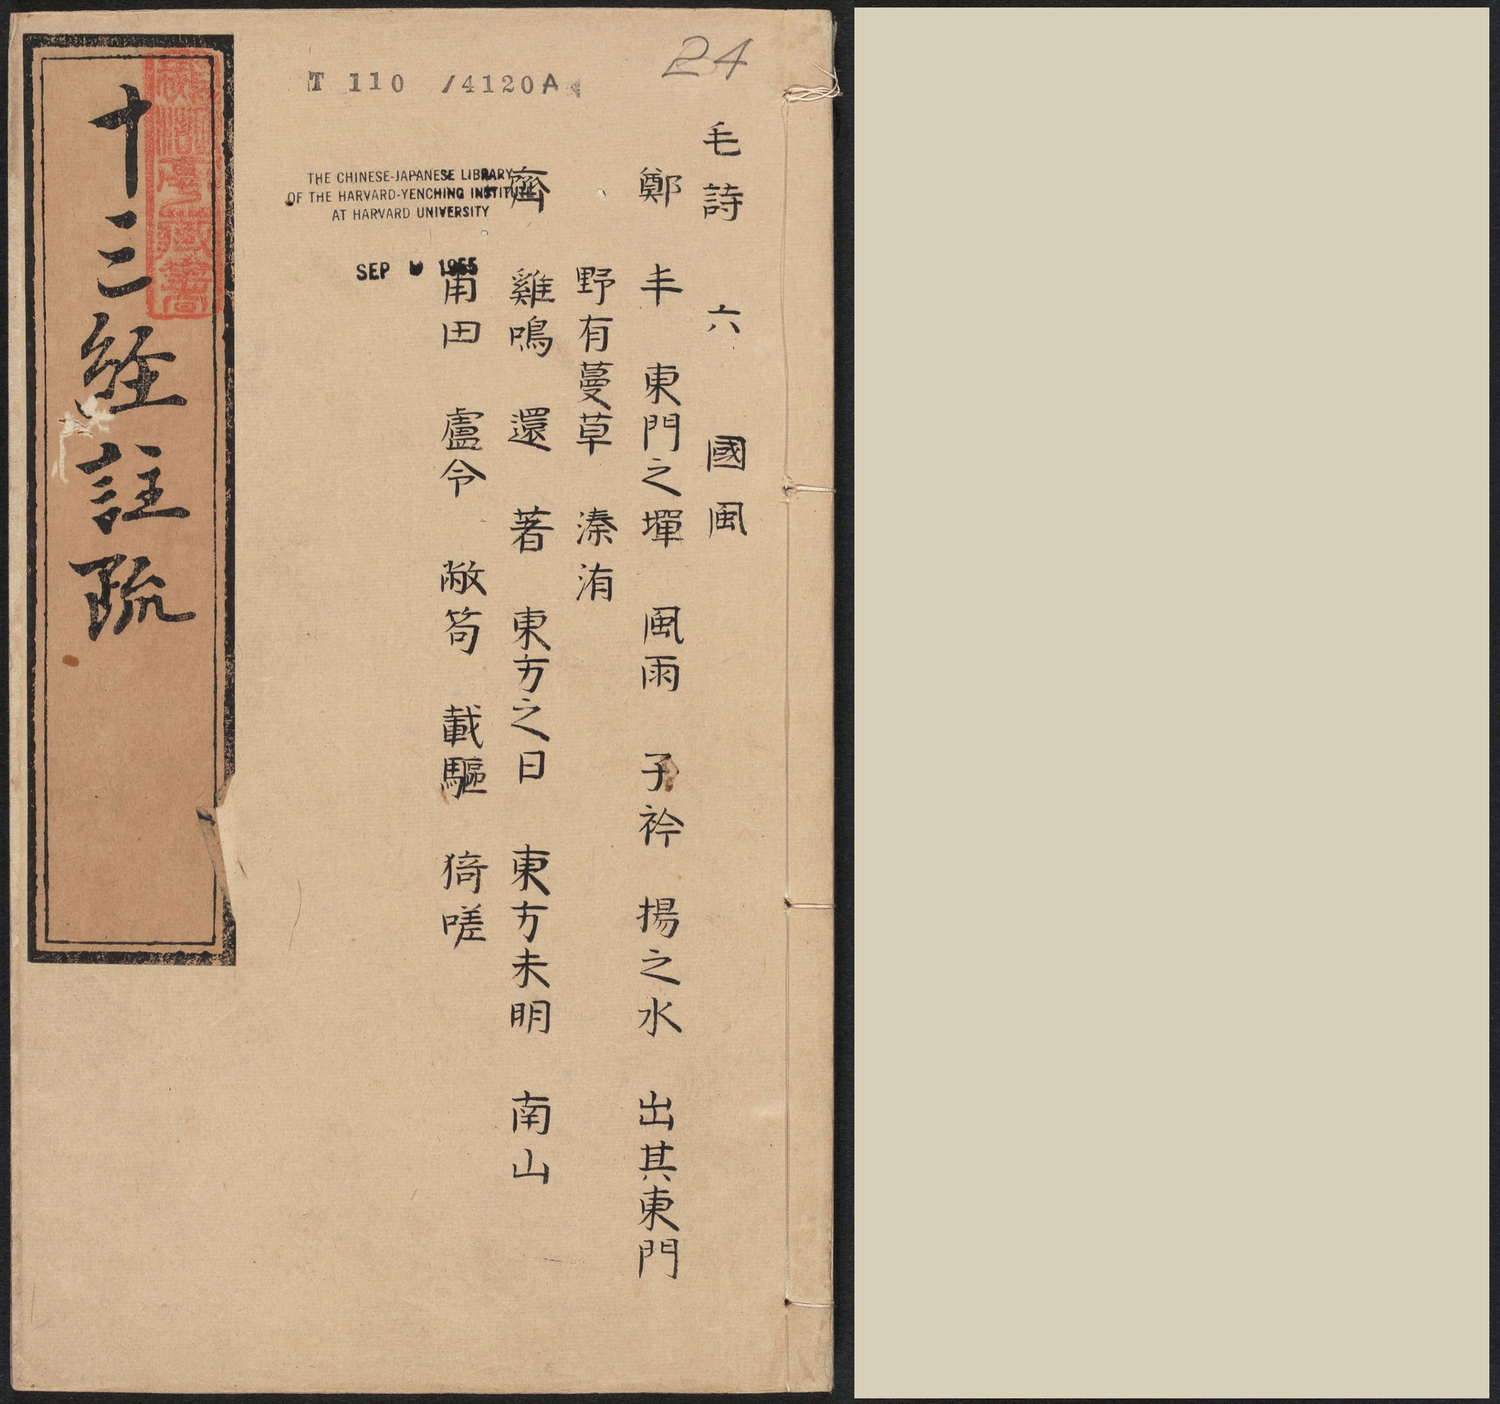 24
T 110 /4120A
毛詩 六 國風
鄭 丰 東門之墠 風雨 子衿 揚之水 出其東門
野有蔓草 溱洧
齊 雞鳴 還 著 東方之日 東方未明 南山
甫田 盧令 敝笱 載驅 猗嗟
THE CHINESE-JAPANESE LIBRARY
OF THE HARVARD-YENCHING INSTITUTE
AT HARVARD UNIVERSITY
SEP 1955
十三經註疏
藏書